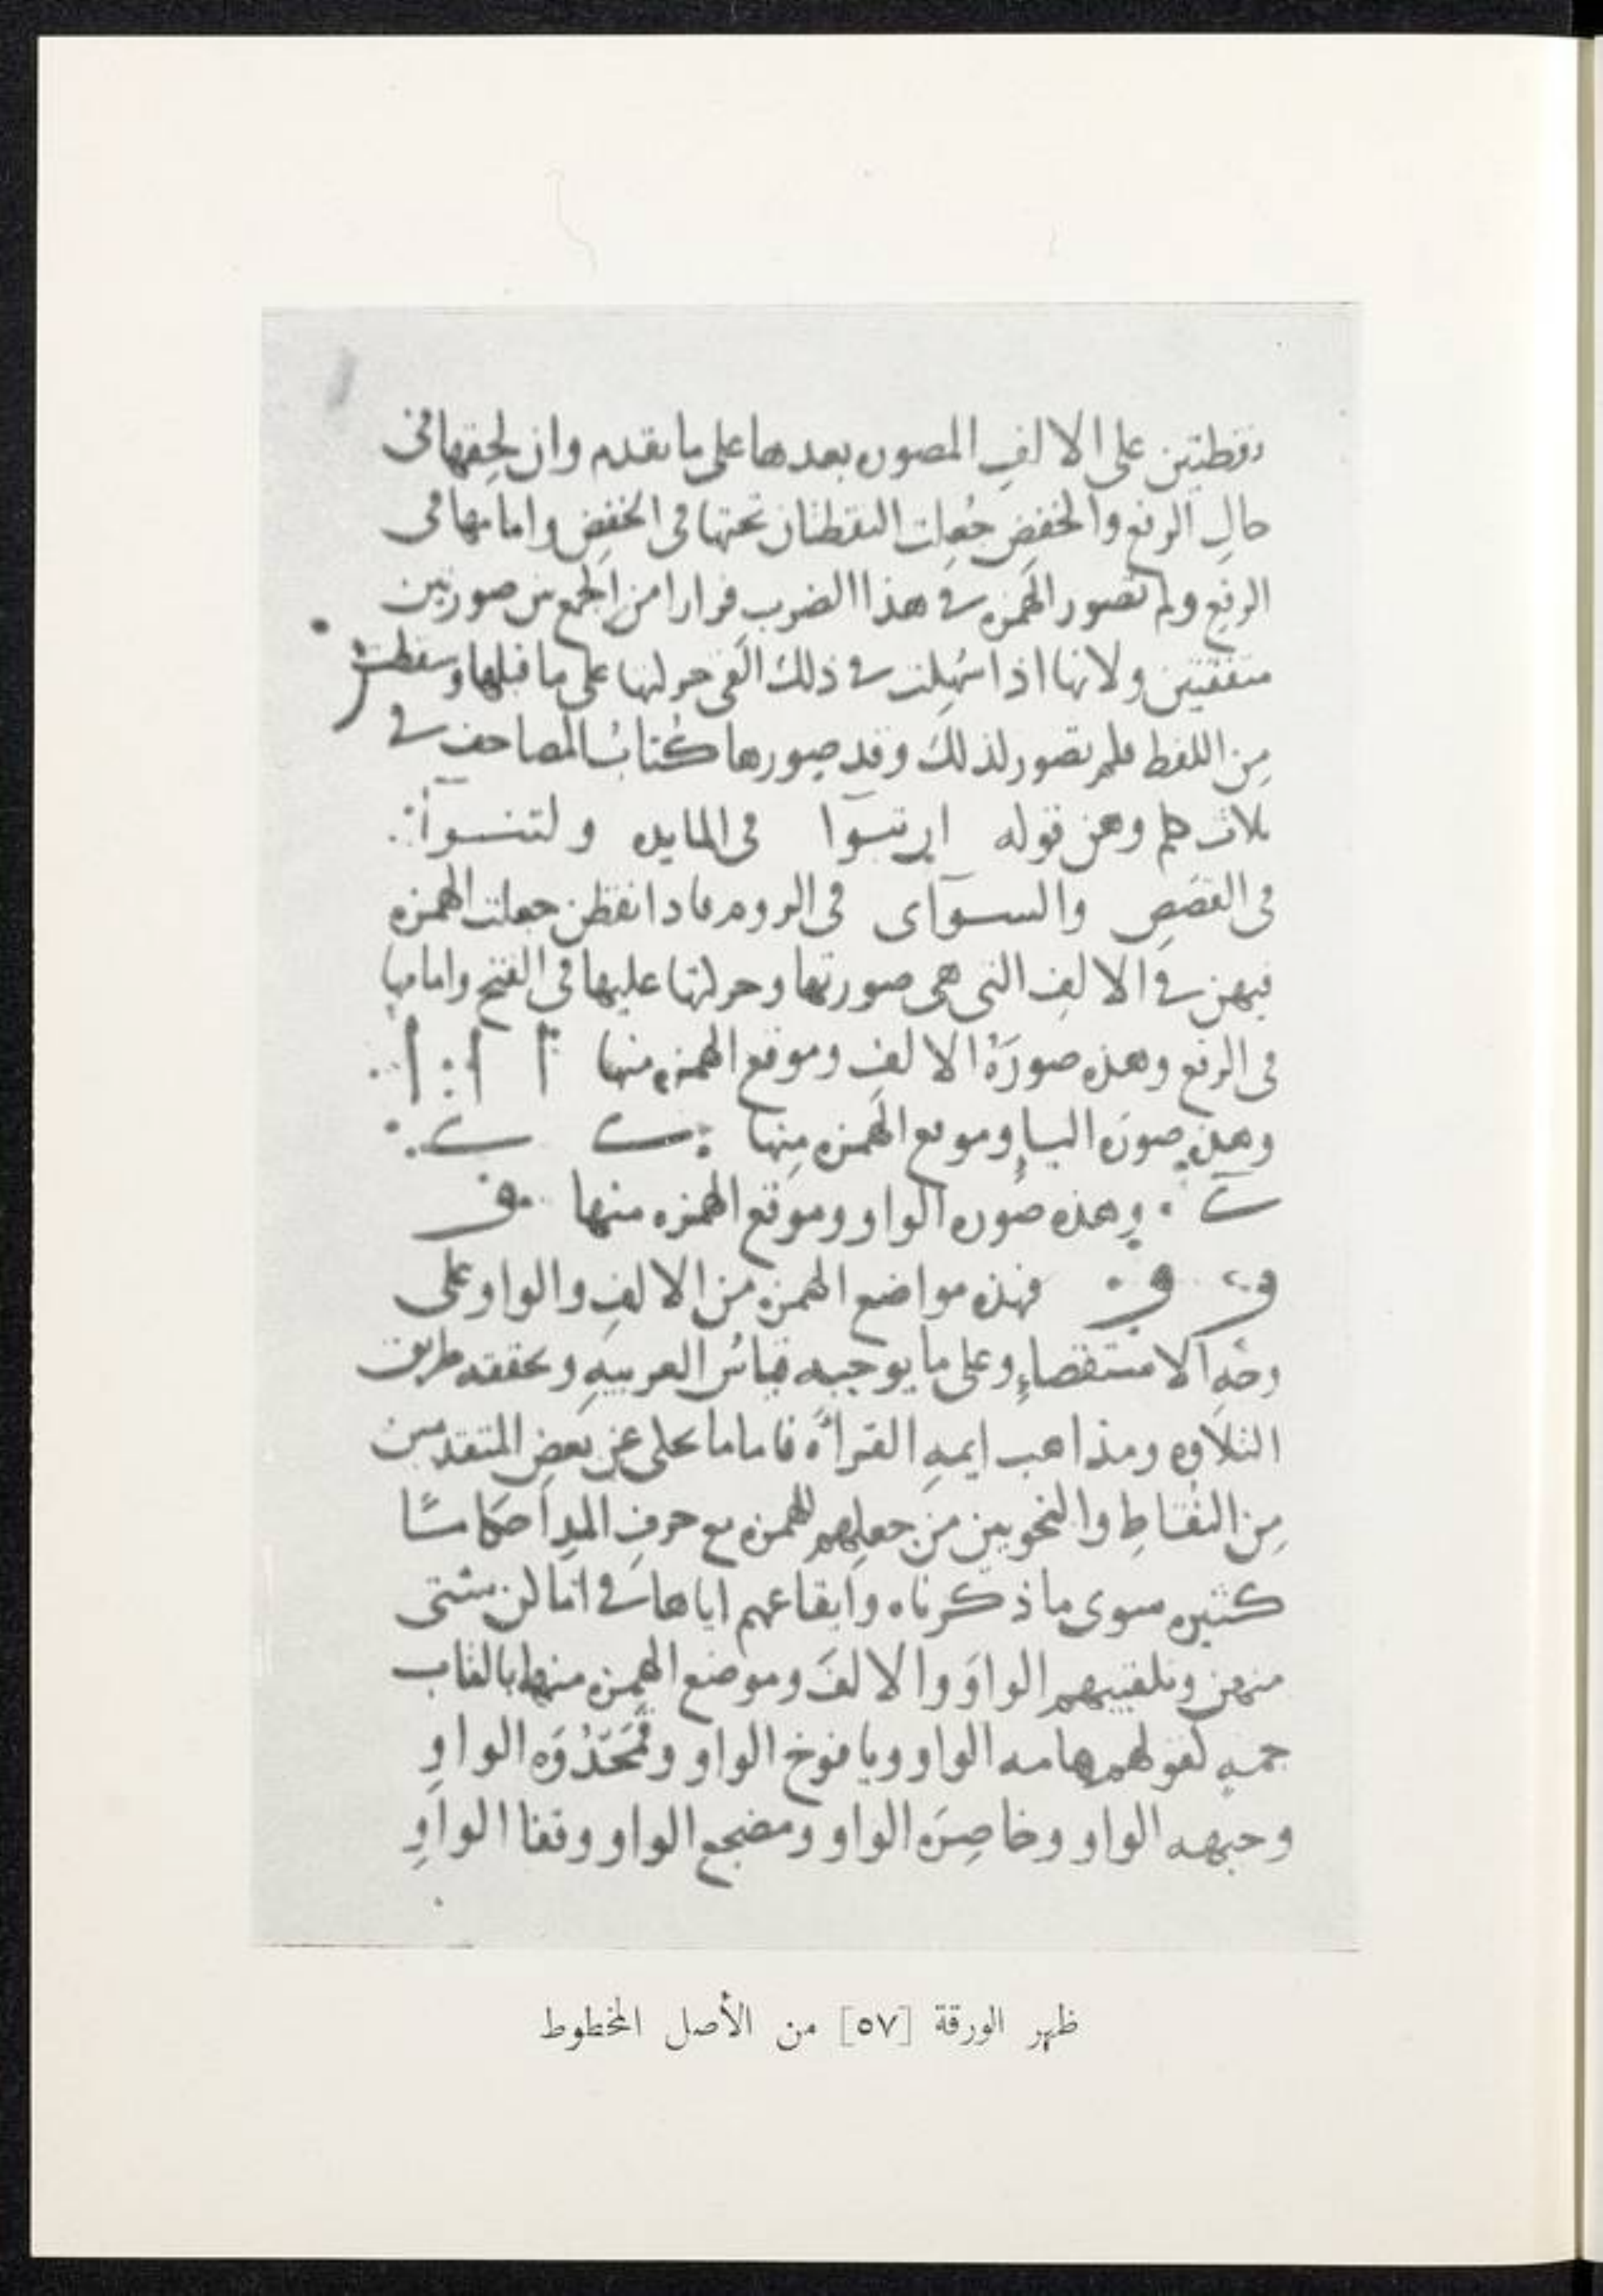 نقطتين على الالفِ المصوره بعدها على ما تقدم وان لحقها فى
حالِ الرفع والخفضِ جُعِلت النقطتان تحتها فى الخفضِ وامامها فى
الرفع ولم تصور الهمزه فى هذا الضرب فرارا من الجمع بين صورتين
متفقتين ولانها اذا سُهِلت فى ذلك القى حركتها على ما قبلها وسقطت
مِن اللفظ فلم تصور لذلك وقد صورها كُتابُ المصاحف فى
ثلاث كلم وهن قوله ان تبوآ فى المايده و لتنوآ
فى القصَصِ والسوآى فى الروم فاذا نقطن جعلت الهمزه
فيهن فى الالفِ التى هى صورتها وحركتها عليها فى الفتح وامامها
فى الرفع وهذه صورَةُ الالف وموقع الهمزه منها
وهذه صورَه الياءِ وموقع الهمزه مِنها
وهذه صُوره الواو وموقع الهمزه منها
فهذه مواضع الهمزه من الالفِ والواو على
وجْهِ الاستقصاءِ وعلى ما يوجبه قياسُ العربيهِ وتحققه طريق
التلاوه ومذاهب ايمهِ القرأة فاما ما حكى عن بعضِ المتقدمين
مِن النُقاطِ والنحويين مِن جعلِهم للهمزه مع حرفِ المدِ احكامًا
كثيره سوى ما ذكرناه وايقاعهم اياها فى اماكن شتى
منهن وتلقيبهم الواوَ والالفَ وموضع الهمزه منهما بالقاب
جمهٍ كقولهم هامه الواو ويافوخ الواو وقَمَحْدُوَه الواوِ
وجبهه الواو وخاصِرَه الواو ومضجع الواو وقفا الواوِ
ظهر الورقة [٥٧] من الأصل المخطوط